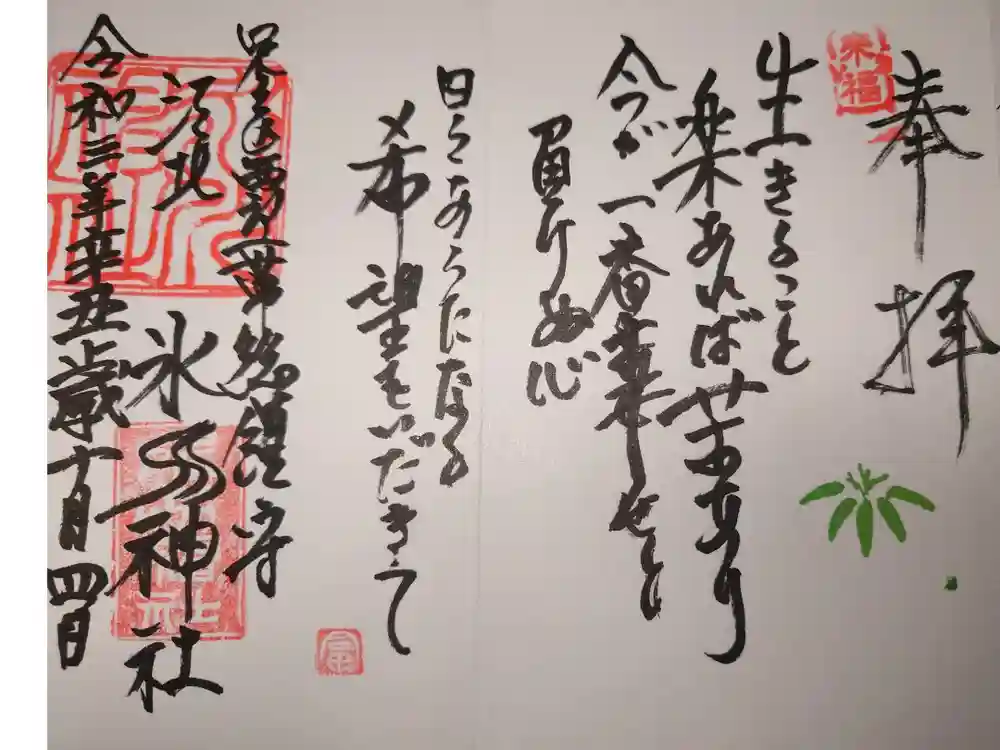 奉拝
来福
生きること
楽あれば苦あり
今が一番幸せと
負けぬ心
日々あらたなる
希望をいだきて
総鎮守
氷川神社
令和三年辛丑歳十月四日